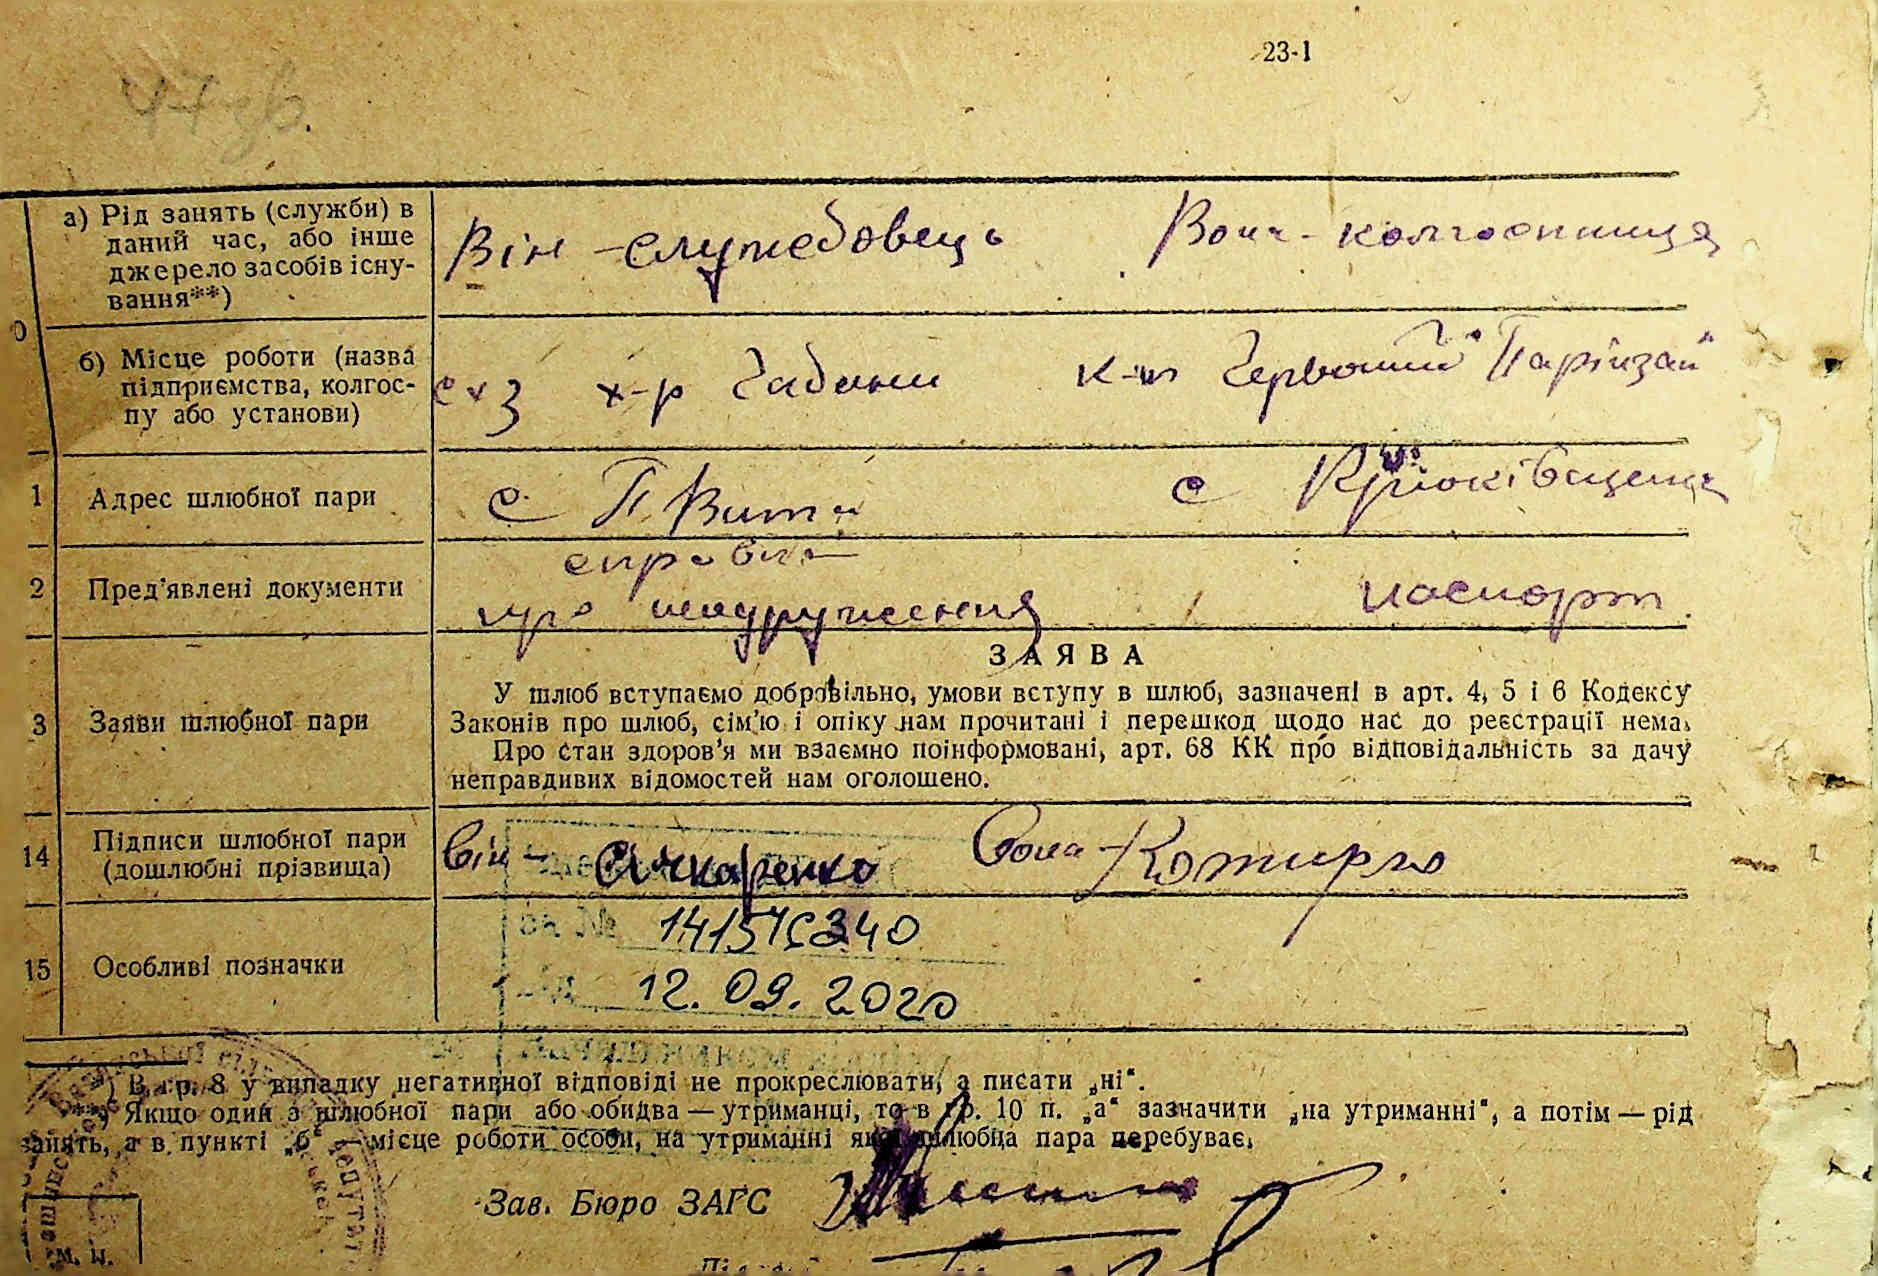 23-1
47 др.
а) Рід занять (служби) в
даний час, або інше
джерело засобів існу-
вання**)
Він - службовець Вона - колгоспниця
б) Місце роботи (назва
підприємства, колгос-
пу або установи)
х-р Чабани к-п Червоний Партизан"
1 Адрес шлюбної пари
с П. Вита с Крюківщена
2 Пред'явлені документи
справка
про подруження паспорт.
3 Заяви шлюбної пари
ЗАЯВА
У шлюб вступаємо добровільно, умови вступу в шлюб, зазначені в арт. 4, 5 і 6 Кодексу
Законів про шлюб, сім'ю і опіку нам прочитані і перешкод щодо нас до реєстрації нема.
Про стан здоров'я ми взаємно поінформовані, арт. 68 КК про відповідальність за дачу
неправдивих відомостей нам оголошено.
14 Підписи шлюбної пари
(дошлюбні прізвища)
Він - Січкаренко Вона - Котирло
15 Особливі позначки
12.09.2020
*) В гр. 8 у випадку негативної відповіді не прокреслювати, а писати „ні".
**) Якщо один з шлюбної пари або обидва — утриманці, то в гр. 10 п. „а" зазначити „на утриманні", а потім — рід
занять, а в пункті „б" — місце роботи особи, на утриманні якої шлюбна пара перебуває.
Зав. Бюро ЗАГС
М. П.